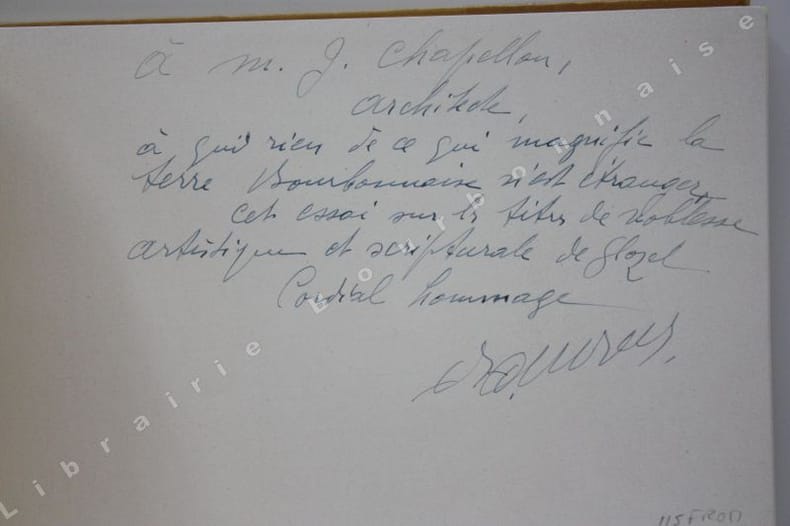 à M. J. Chapellon,
architecte,
à qui rien de ce qui magnifie la
terre Bourbonnaise n'est étranger,
cet essai sur les titres de noblesse
artistique et scripturale de Glozel
Cordial hommage
Librairie Bourbonnaise